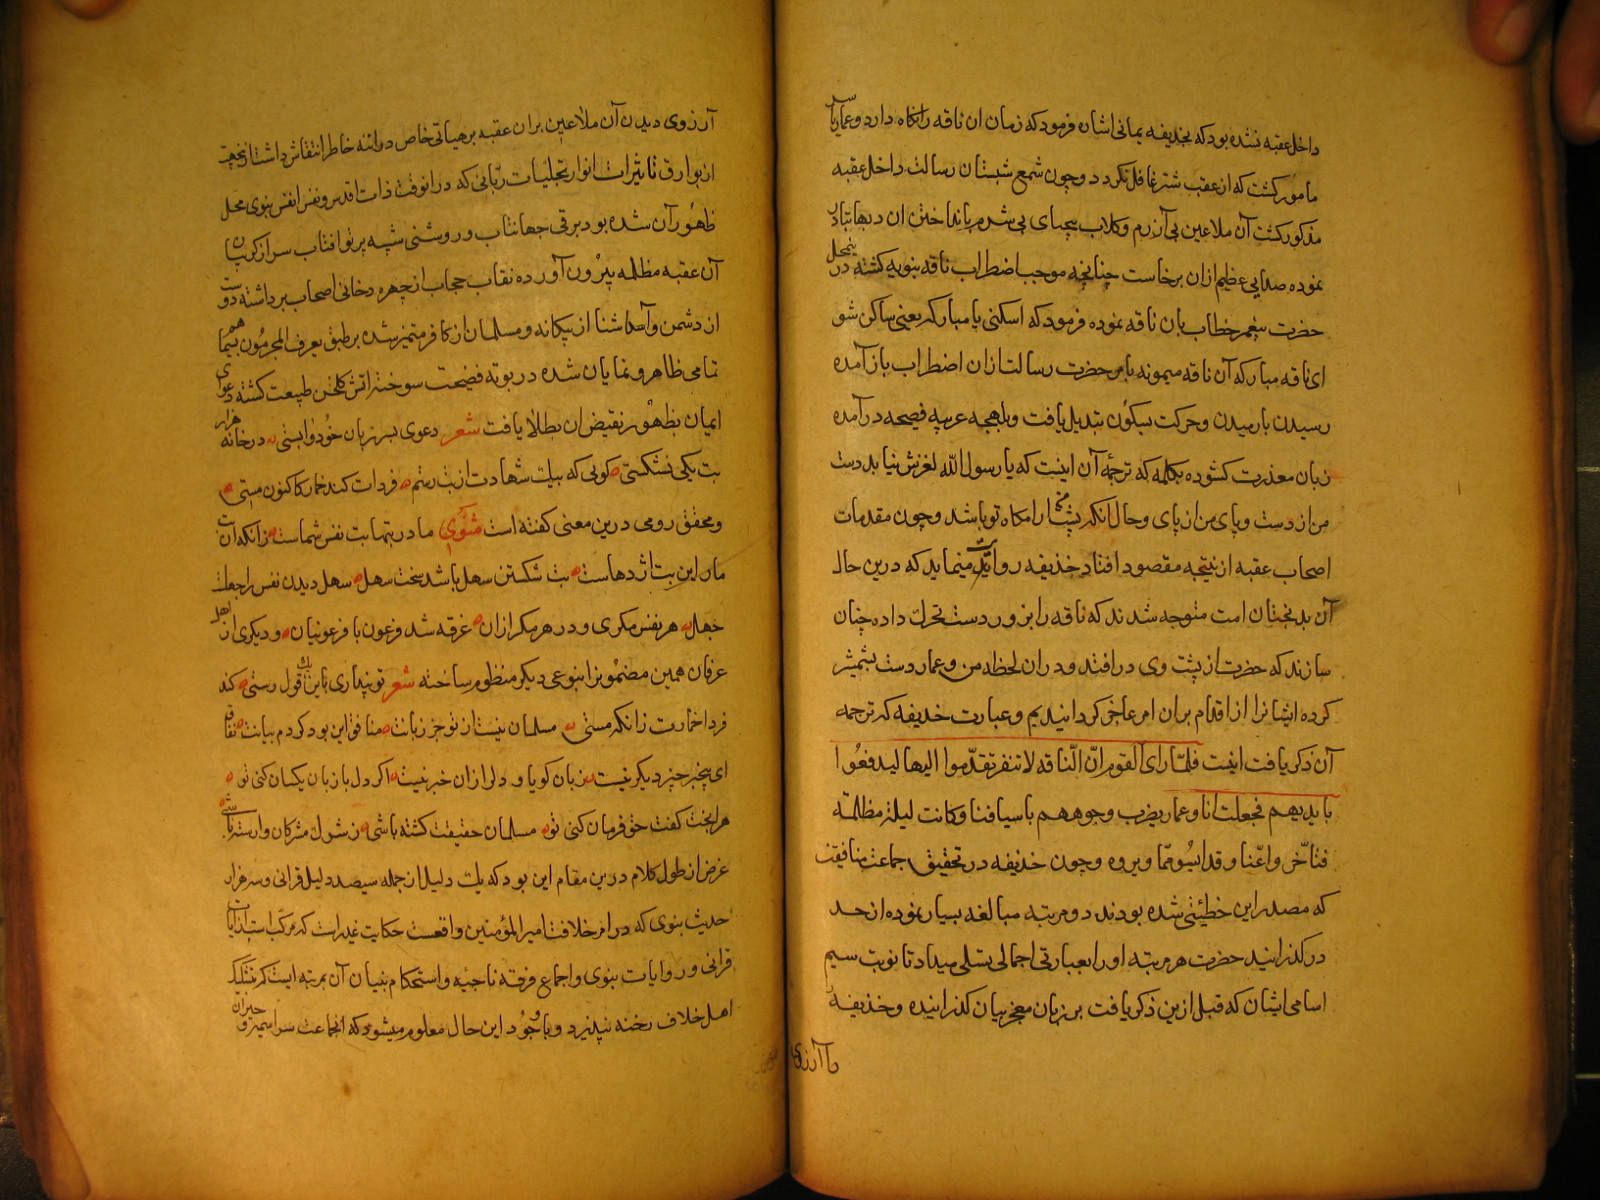 داخل عقبه نشده بود که بحذیفه یمانی اشان فرمود که زمان ان ناقه را نکاه دارد و عمار یاسر
مامور کشت که از عقب شتر غافل نکردد و چون شمع شبستان رسالت داخل عقبه
مذکور کشت آن ملاعین بی آزرم و کلاب بیحیای بی شرم بانداختن ان دبها تبادر
نموده صدایی عظیم ازان برخاست چنانچه موجب اضطراب ناقه نبویه کشته در ینمحل
حضرت پیغمبر خطاب بان ناقه نموده فرمود که اسکنی یا مبارکه یعنی ساکن شو
ای ناقه مبارکه آن ناقه میمونه بامر حضرت رسالت ازان اضطراب باز آمده
رسیدن بارمیدن و حرکت بسکون تبدیل یافت و بلهجه عربیه فصیحه در آمده
زبان معذرت کشوده بکلمه که ترجمه آن اینست که یا رسول الله لغزش نیابد دست
من از دست و پای من از پای و حال آنکه پشت ما را مکاه تو باشد و چون مقدمات
اصحاب عقبه از نتیجه مقصود افتاد خذیفه روایت مینماید که درین حال
آن بدبختان امت متوجه شدند که ناقه را بزور دست تحرک داده چنان
سازند که حضرت از پشت وی درافتد و دران لحظه من و عمار دست بشمشیر
کرده ایشانرا از اقدام بران امر عاجز کردانیدیم و عبارت خذیفه که ترجمه
آن ذکر یافت اینست فلمّا رای القوم انّ النّاقه لا تنفر تقدّموا الیها لیدفعُوا
بایدیهم فجعلت انا و عمار یضرب وجوههم باسیافنا و کانت لیلة مظلمة
فتاخّر واعنّا و قد ایسُومّا ویروه و چون خذیفه در تحقیق جماعت منافقین
که مصدر این خطیئتی شده بودند دو مرتبه مبالغه بسیار نموده از حد
در کذرانید حضرت هر مرتبه او را بعبارتی اجمالی تسلی میداد تا نوبت سیم
اسامی اشان که قبل ازین ذکر یافت بر زبان معجز بیان کذرانیده و خذیفه را
آرزوی دیدن آن ملاعین بران عقبه برهیاتی خاص در اننه خاطر انتقاش داشت ازینجهت
از بوارق تاثیرات انوار تجلیات ربّانی که در انوقت ذات اقدس و نفس انفس نبوی محل
ظهور آن شده بود برقی جهانتاب و روشنی شبه پرتو افتاب سر از کریبان
آن عقبه مظلمه بیرون آورده نقاب حجاب از چهره دخانی اصحاب برداشته دوست
از دشمن و آشنا از بیکانه و مسلمان از کافر متمیز شده بر طبق یعرف المجرمون بسیماهم
تمامی ظاهر و نمایان شده در بوته فضیحت سوخته اتش کلخن طبیعت کشته دعوای
ایمان بظهور نقیض ان بطلان یافت شعر دعوی بسر زبان خود وابستی در خانه هزار
بت یکی نشکستی کوئی که بیک شهادت از بت رستم فردات کند خمار کاکنون مستی
و محقق رومی درین معنی کفته است مثنوی مادر بتها بت نفس شماست زانکه ان بت
مار این بت اژدهاست بت شکستن سهل باشد سخت سهل سهل دیدن نفس را جهلست
جهل هر نفس مکری و در هر مکر ازان غرقه شد فرعون با فرعونیان و دیکری از اهل
عرفان همین مضمونرا بنوعی دیکر منظوم ساخته شعر تو پنداری باین یک قول رستی کند
فردا خمارت زانکه مستی مسلمان نیست از تو جز زبانت منافق این بود کردم بیانت نفاق
ای بیخبر چیز دیکر نیست زبان کویا و دل ازان خبر نیست اکر دل با زبان یکسان کنی تو
هر انچت کفت حق فرمان کنی تو مسلمان حقیقت کشته باشی ز شرک مشرکان وارسته باشی
غرض از طول کلام درین مقام این بود که یک دلیل از جمله سیصد دلیل قرانی و سه هزار
حدیث نبوی که در امر خلافت امیر المؤمنین واقعست حکایت غدیر است که مرکب است از ایات
قرانی و روایات نبوی و اجماع فرقه ناجیه و استحکام بنیان آن بمرتبه ایست که بتشکیک
اهل خلاف رخنه نپذیرد و با وجود این حال معلوم میشود که انجماعت سراسیمه و حیران
را آرزوی